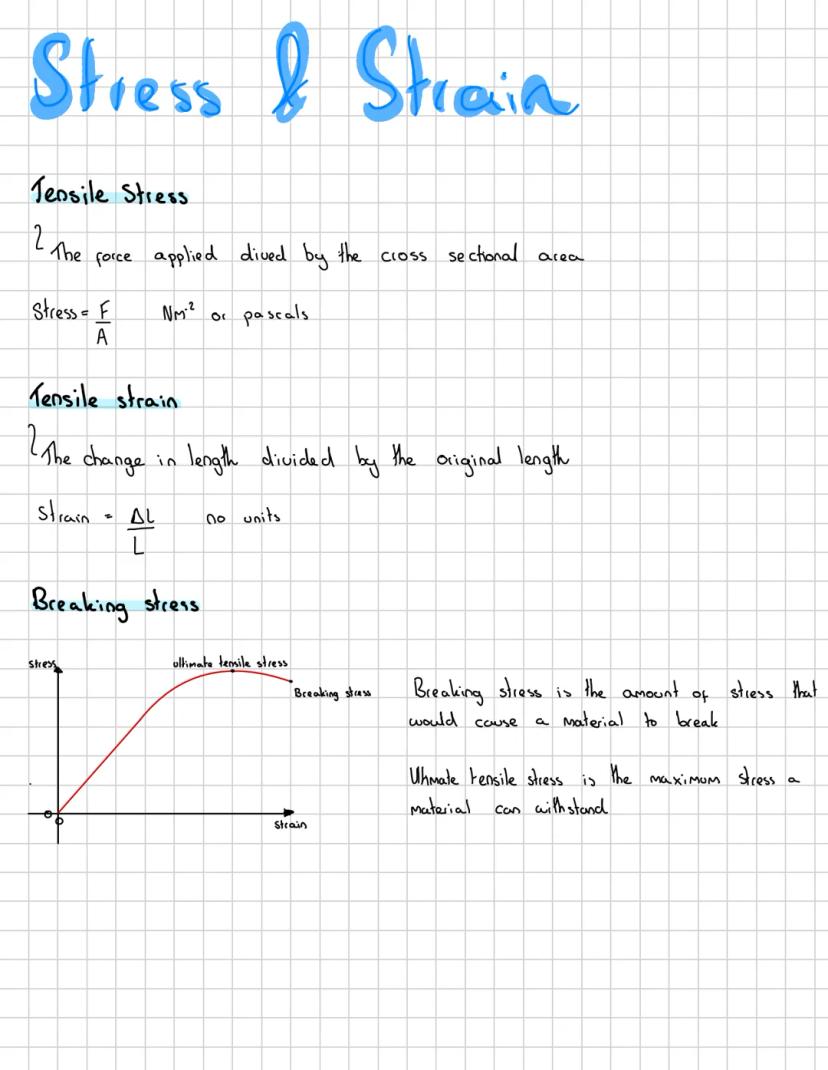 Stress & Strain
Tensile Stress
The force applied dived by the cross sectional area
Stress = F/A Nm⁻² or pascals
Tensile strain
The change in length divided by the original length
Strain = ΔL/L no units
Breaking stress
stress
ultimate tensile stress
Breaking stress
0
0
Strain
Breaking stress is the amount of stress that
would cause a material to break
Ultimate tensile stress is the maximum stress a
material can withstand